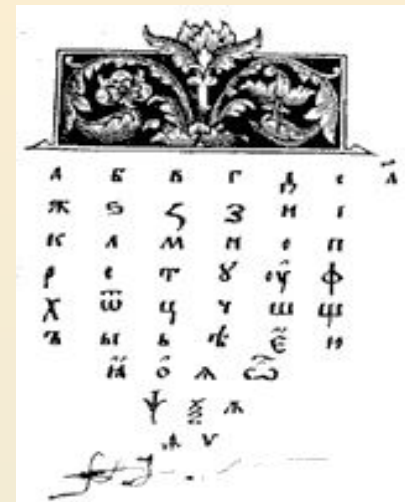 а б в г д е
ж ѕ ꙁ з и і
к л м н о п
р с т ꙋ ф
х ѿ ц ч ш щ
ъ ы ь ѣ є ю
ꙗ о ѧ ѡ
ѱ ѯ ѫ
ѵ